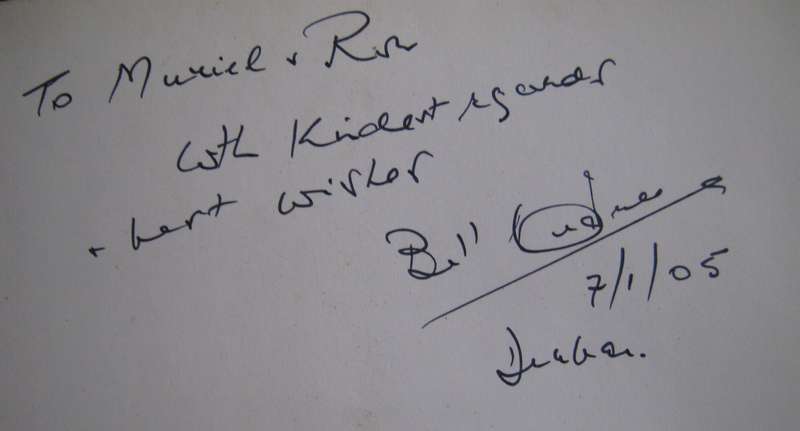 To Muriel + Ron
With Kindest regards
+ best wishes
Bill
7/1/05
Durban.